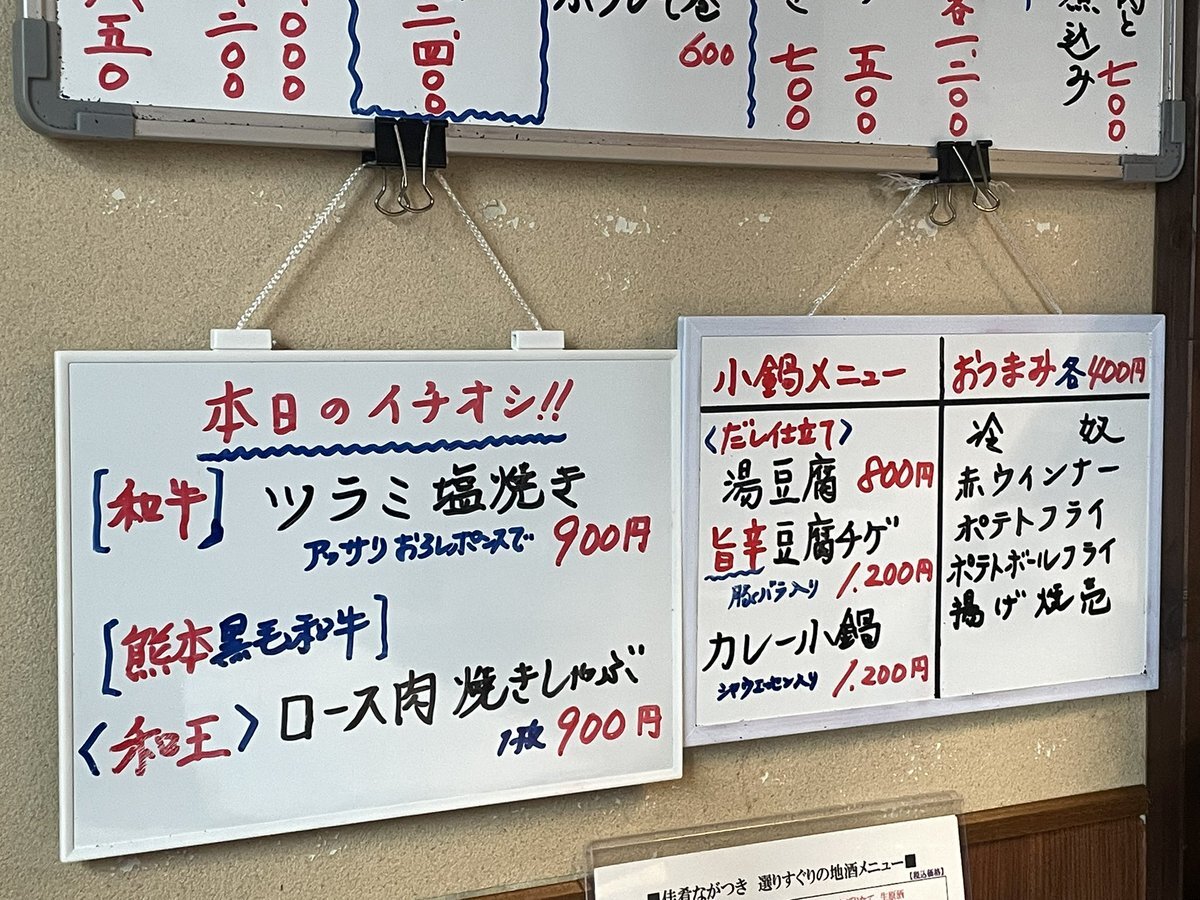 五〇
二〇〇
〇〇〇
二、四〇〇
600
七〇〇
五〇〇
各一、二〇〇
煮込み 七〇〇
本日のイチオシ!!
[和牛] ツラミ塩焼き
アッサリおろしポンズで 900円
[熊本黒毛和牛]
〈和王〉ロース肉焼きしゃぶ
1枚 900円
小鍋メニュー
〈だし仕立て〉
湯豆腐 800円
旨辛豆腐チゲ
豚バラ入り 1.200円
カレー小鍋
シャウエッセン入り 1.200円
おつまみ各400円
冷奴
赤ウインナー
ポテトフライ
ポテトボールフライ
揚げ焼売
■佳肴ながつき 選りすぐりの地酒メニュー■
【税込価格】
生原酒